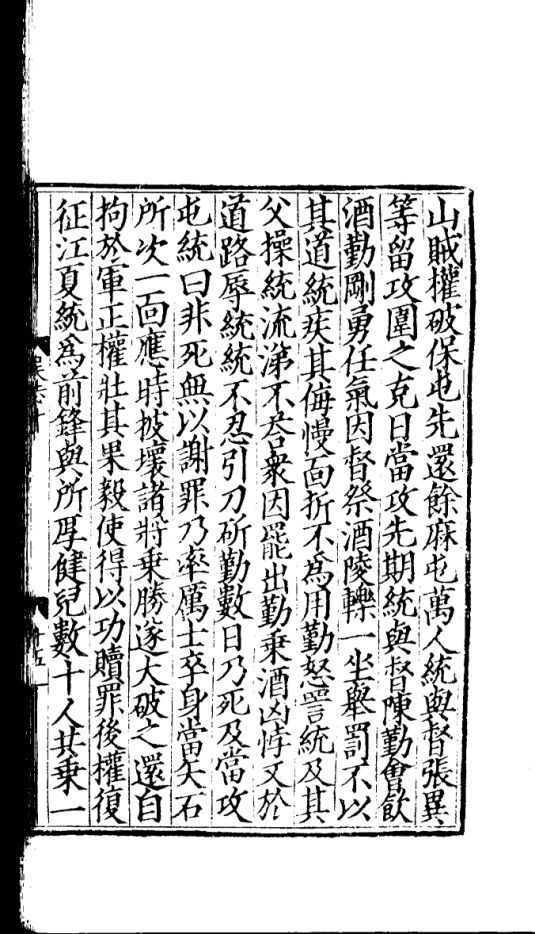 山賊權破保屯先還餘麻屯萬人統與督張異
等留攻圍之克日當攻先期統與督陳勤會飲
酒勤剛勇任氣因督祭酒陵轢一坐舉罰不以
其道統疾其侮慢面折不為用勤怒詈統及其
父操統流涕不荅衆因罷出勤乗酒凶悖又於
道路辱統統不忍引刀斫勤數日乃死及當攻
屯統曰非死無以謝罪乃率厲士卒身當矢石
所攻一面應時披壞諸將乗勝遂大破之還自
拘於軍正權壯其果毅使得以功贖罪後權復
征江夏統為前鋒與所厚健兒數十人共乗一